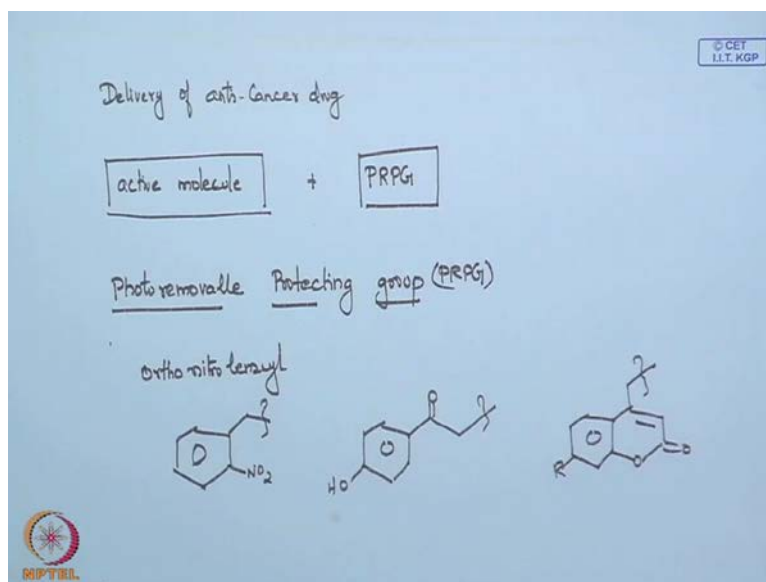 © CET
I.I.T. KGP
Delivery of anti-Cancer drug
active molecule + PRPG
Photoremovable Protecting group (PRPG)
Ortho nitro benzyl
NO2
HO
O
R
O
O
NPTEL